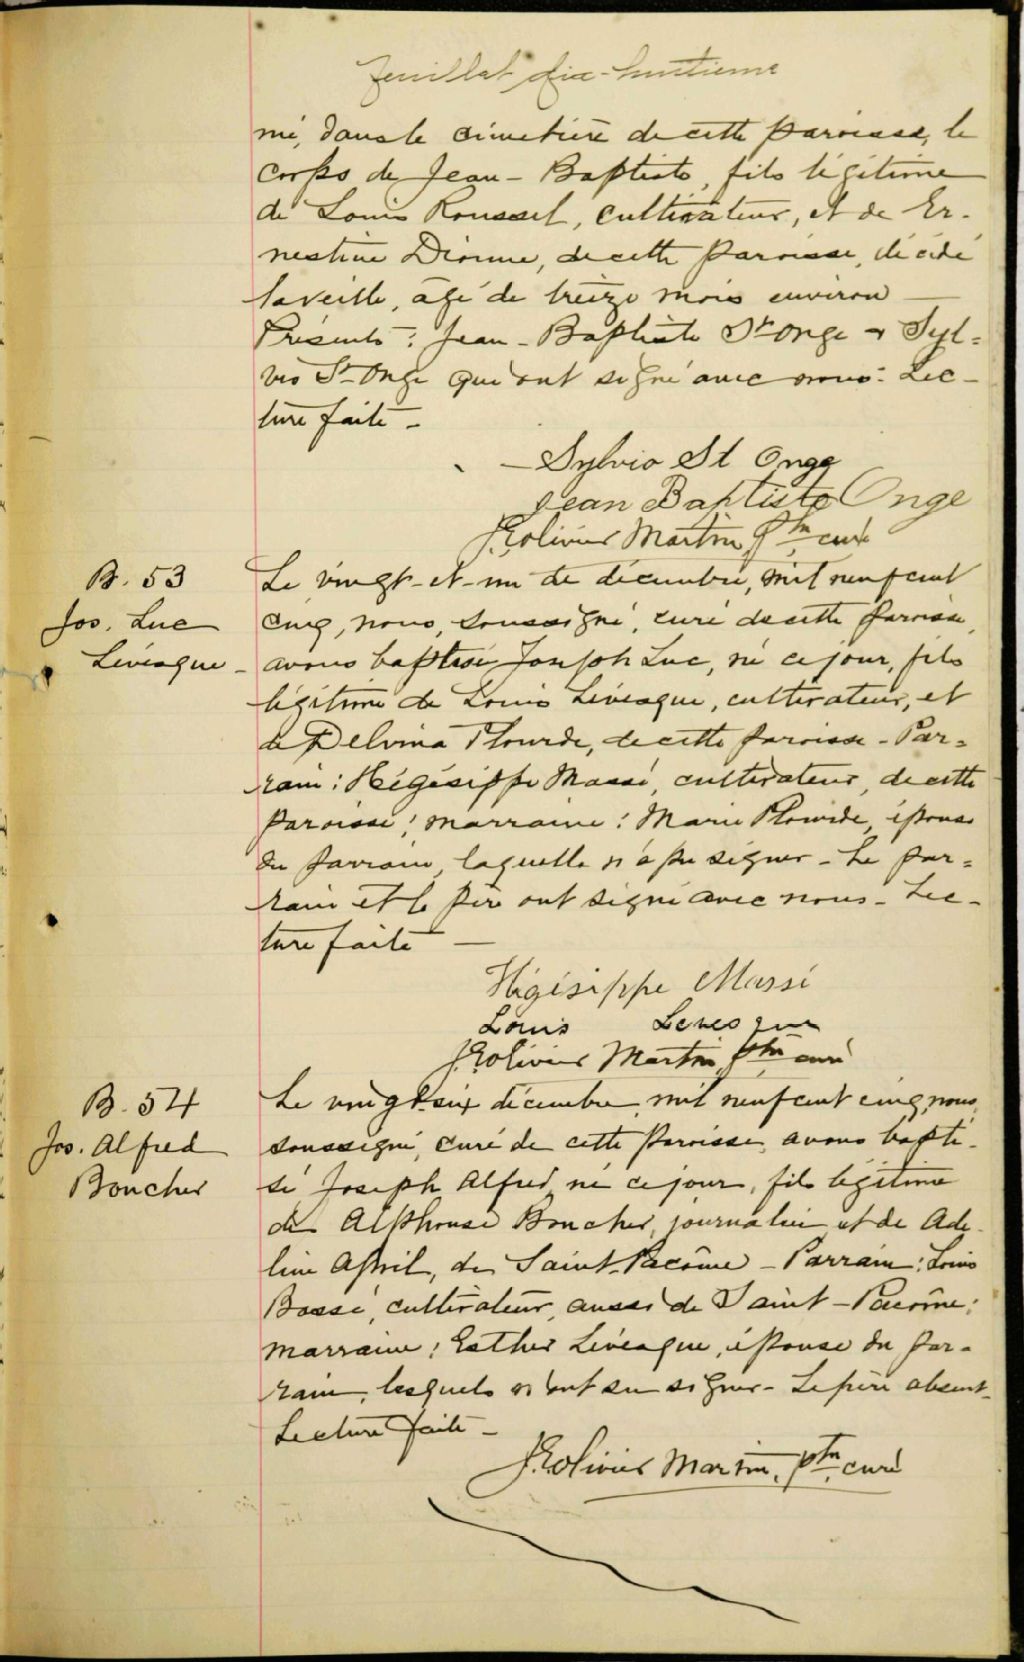 feuillet dix-huitième
mé, dans le cimetière de cette paroisse, le
corps de Jean-Baptiste, fils légitime
de Louis Roussel, cultivateur, et de Er-
nestine Dionne, de cette paroisse, décédé
la veille, âgé de treize mois environ —
Présents: Jean-Baptiste St Onge & Syl-
vio St-Onge qui ont signé avec nous. Lec-
ture faite -
Sylvio St Onge
Jean Baptiste Onge
J. E. Olivier Martin, Ptre curé
B. 53
Jos. Luc
Lévesque
Le vingt-et-un de décembre, mil neuf cent
cinq, nous, soussigné, curé de cette paroisse,
avons baptisé Joseph Luc, né ce jour, fils
légitime de Louis Lévesque, cultivateur, et
de Delvina Plourde, de cette paroisse - Par-
rain: Hégésippe Massé, cultivateur, de cette
paroisse; marraine: Marie Plourde, épouse
du parrain, laquelle n'a pu signer - Le par-
rain et le père ont signé avec nous - Lec-
ture faite —
Hégésippe Massé
Louis Levesque
J. E. Olivier Martin, Ptre curé
B. 54
Jos. Alfred
Boucher
Le vingt-six décembre, mil neuf cent cinq, nous,
soussigné, curé de cette paroisse, avons bapti-
sé Joseph Alfred, né ce jour, fils légitime
de Alphonse Boucher, journalier et de Ade-
line April, de Saint-Pacôme - Parrain: Louis
Bossé, cultivateur, aussi de Saint-Pacôme;
marraine: Esther Lévesque, épouse du par-
rain, lesquels n'ont su signer - Le père absent -
Lecture faite -
J. E. Olivier Martin, ptre, curé